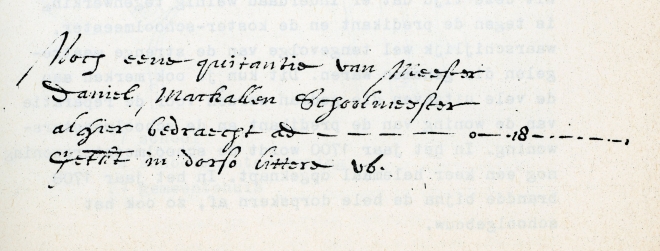 Noch eene quitantie van Meester
Daniel Mackallen Schoolmeester
alhier bedraecht ad — — — — 0 — 18 — . — . —
in dorso littere vb.